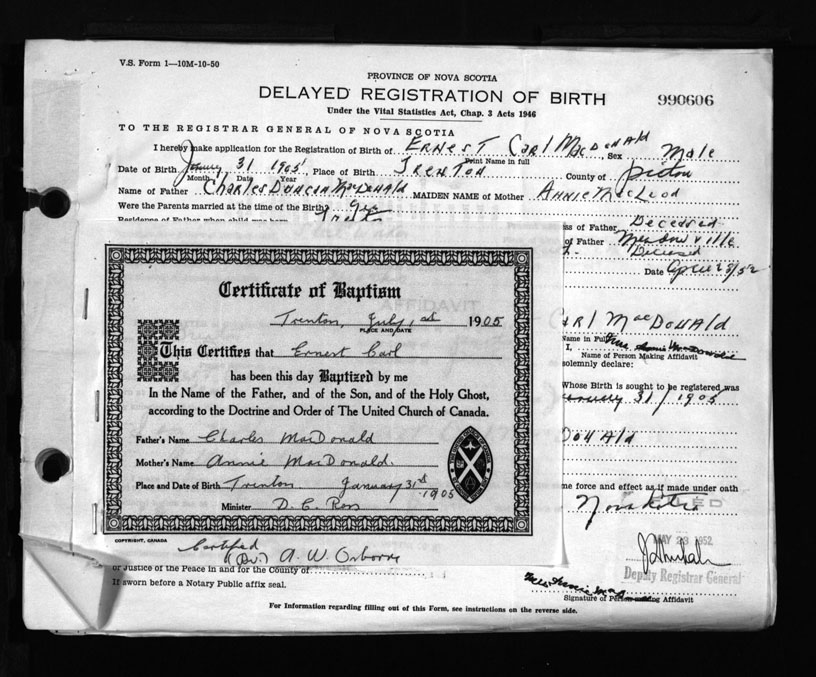 V.S. Form 1—10M-10-50
PROVINCE OF NOVA SCOTIA
DELAYED REGISTRATION OF BIRTH
990606
Under the Vital Statistics Act, Chap. 3 Acts 1946
TO THE REGISTRAR GENERAL OF NOVA SCOTIA
I hereby make application for the Registration of Birth of ERNEST CARL MACDONALD, Sex Male
Print Name in full
Date of Birth January 31 1905 Place of Birth TRENTON County of Pictou
Month Date Year
Name of Father Charles Duncan MacDonald MAIDEN NAME of Mother ANNIE MacLeod
Were the Parents married at the time of the Birth? Yes
Residence of Father when child was born Trenton
ss of Father Deceased
of Father Meadowville
Deceased
Date April 23/52
AFFIDAVIT
CARL MacDONALD
Name in Full
I, Mrs Annie MacDonald
Name of Person Making Affidavit
solemnly declare:
Whose Birth is sought to be registered was
January 31/1905
DONALD
me force and effect as if made under oath
Nova Scotia
MAY 23 1952
Deputy Registrar General
Certificate of Baptism
Trenton, July 1st 1905
PLACE AND DATE
This Certifies that Ernest Carl
has been this day Baptized by me
In the Name of the Father, and of the Son, and of the Holy Ghost,
according to the Doctrine and Order of The United Church of Canada.
Father's Name Charles MacDonald
Mother's Name Annie MacDonald.
Place and Date of Birth Trenton January 31st 1905
Minister D. C. Ross
COPYRIGHT, CANADA
Certified
(Rev.) A. W. Osborne
or Justice of the Peace in and for the County of
If sworn before a Notary Public affix seal.
Mrs Annie
Signature of Person making Affidavit
For Information regarding filling out of this Form, see instructions on the reverse side.